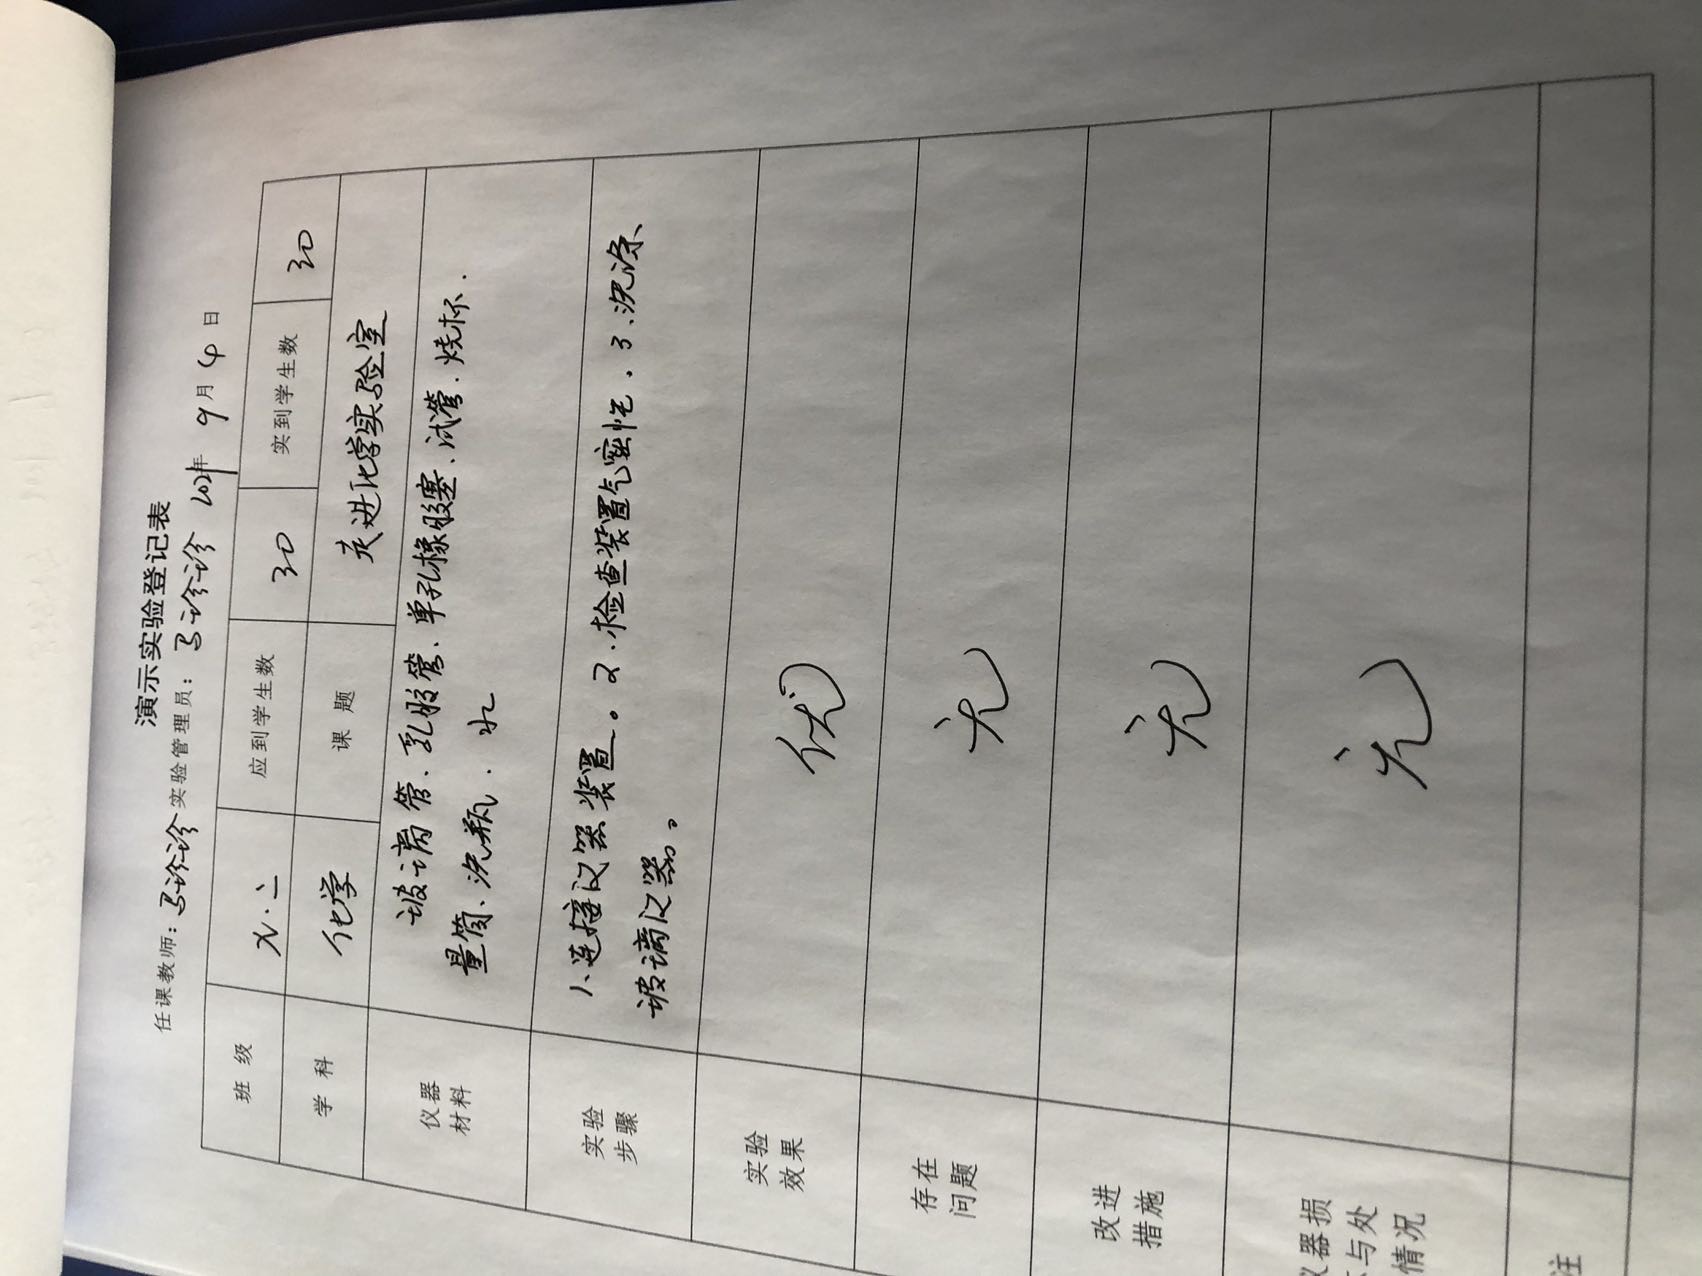 演示实验登记表
任课教师：马诊诊 实验管理员：马诊诊 2021年 9月4日
班 级 九.二 应到学生数 30 实到学生数 30
学 科 化学 课 题 走进化学实验室
仪器
材料
玻璃管、乳胶管、单孔橡胶塞、试管、烧杯、
量筒、洗瓶、水
实验
步骤
1、连接仪器装置。2.检查装置气密性、3、洗涤
玻璃仪器。
实验
效果
优
存在
问题
无
改进
措施
无
仪器损
与处
情况
无
注